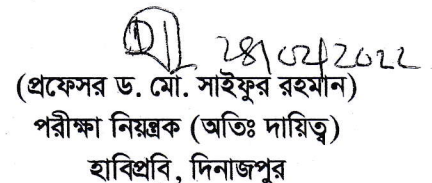 28/02/2022
(প্রফেসর ড. মো. সাইফুর রহমান)
পরীক্ষা নিয়ন্ত্রক (অতিঃ দায়িত্ব)
হাবিপ্রবি, দিনাজপুর